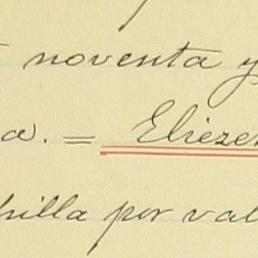 noventa y
a. = Eliezer
illa por val